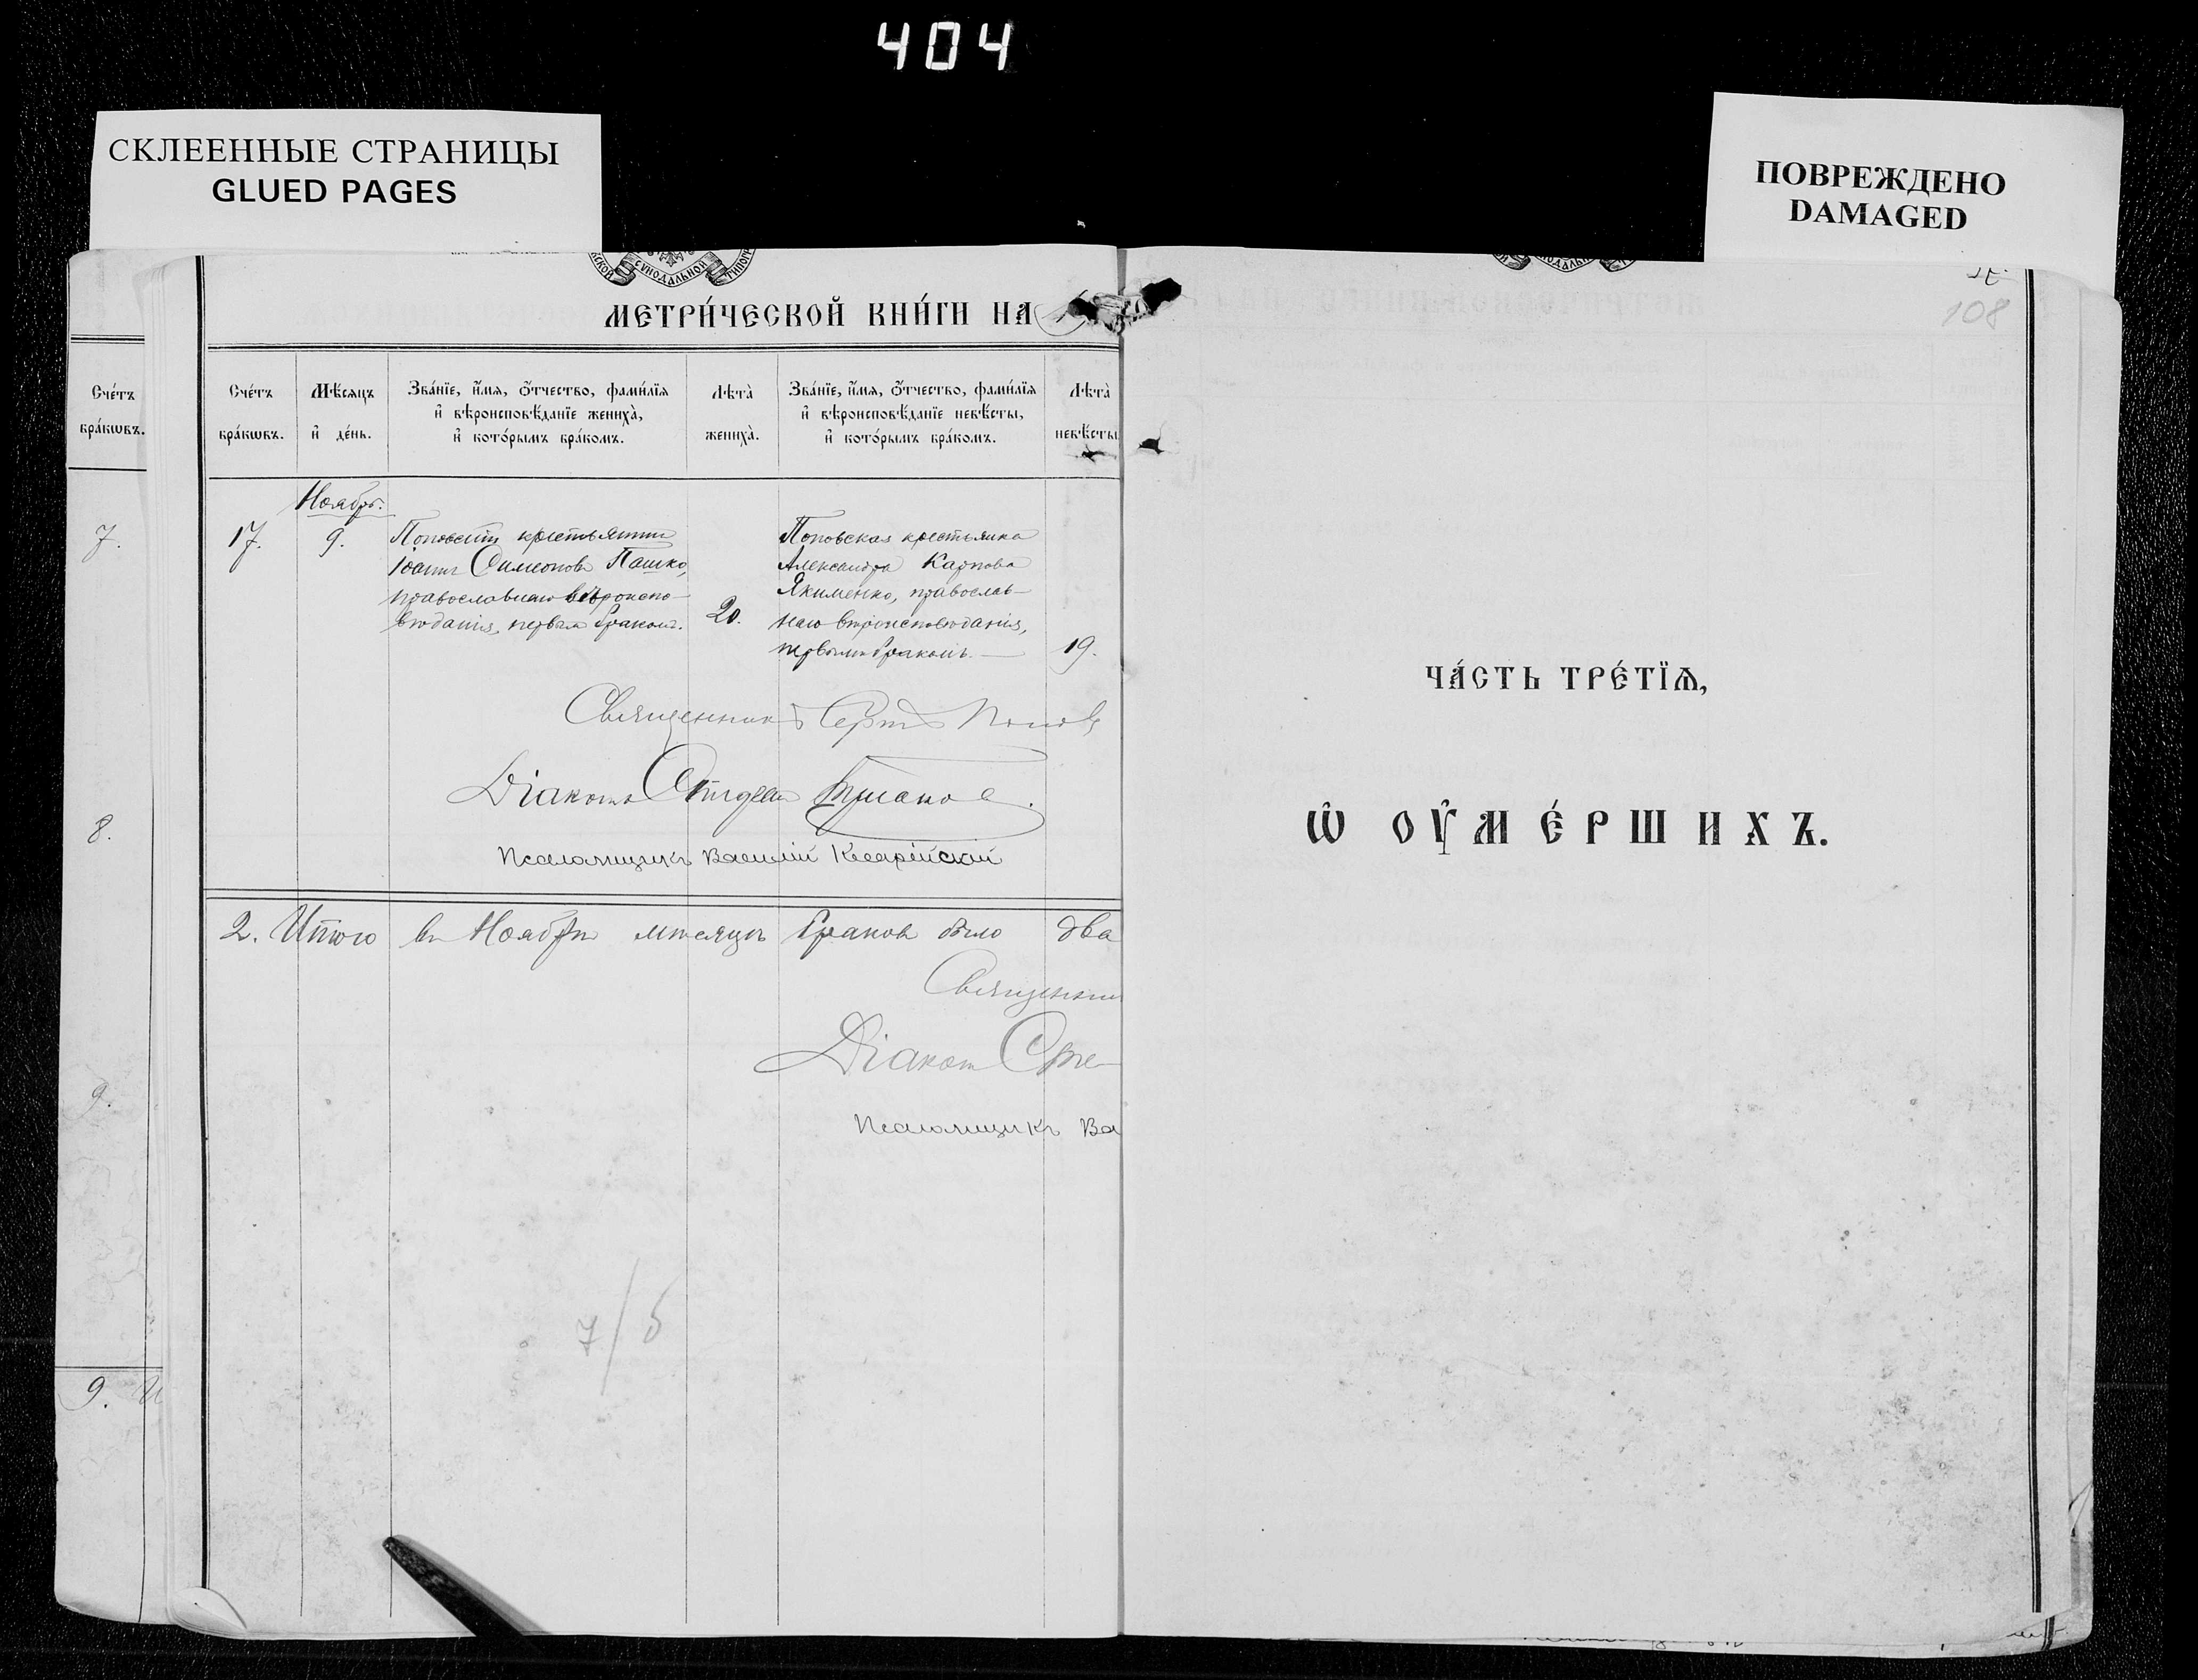 404
СКЛЕЕННЫЕ СТРАНИЦЫ
GLUED PAGES
ПОВРЕЖДЕНО
DAMAGED
СѴНОДАЛЬНОЙ
МЕТРИ́ЧЕСКОЙ КНИ́ГИ НА
108
Сче́тъ бра́кѡвъ.
Сче́тъ бра́кѡвъ.
Мѣ́сяцъ и҆ де́нь.
Зва́нїе, и҆́мя, ѻ҆́тчество, фами́лїя и҆ вѣроисповѣ́данїе жениха̀, и҆ кото́рымъ бра́комъ.
Лѣта̀ жениха̀.
Зва́нїе, и҆́мя, ѻ҆́тчество, фами́лїя и҆ вѣроисповѣ́данїе невѣ́сты, и҆ кото́рымъ бра́комъ.
Лѣта̀ невѣ́сты
7.
8.
9.
9. И
17.
Ноябрь.
9.
Поповскій крестьянинъ
Іоаннъ Симеоновъ Пашко,
православнаго вѣроиспо-
вѣданія, первымъ бракомъ.
20.
Поповская крестьянка
Александра Карпова
Якименко, православ-
наго вѣроисповѣданія,
первымъ бракомъ.
19.
Священникъ Сергѣй Поповъ
Діаконъ
Псаломщикъ Василій Кесарійскій
2. Итого въ Ноябрѣ мѣсяцѣ браковъ было два
Священни
Діаконъ Сте
Псаломщикъ Ва
7/5
ЧА́СТЬ ТРЕ́ТЇѦ,
Ѡ҆ ОУ҆МЕ́РШИХЪ.